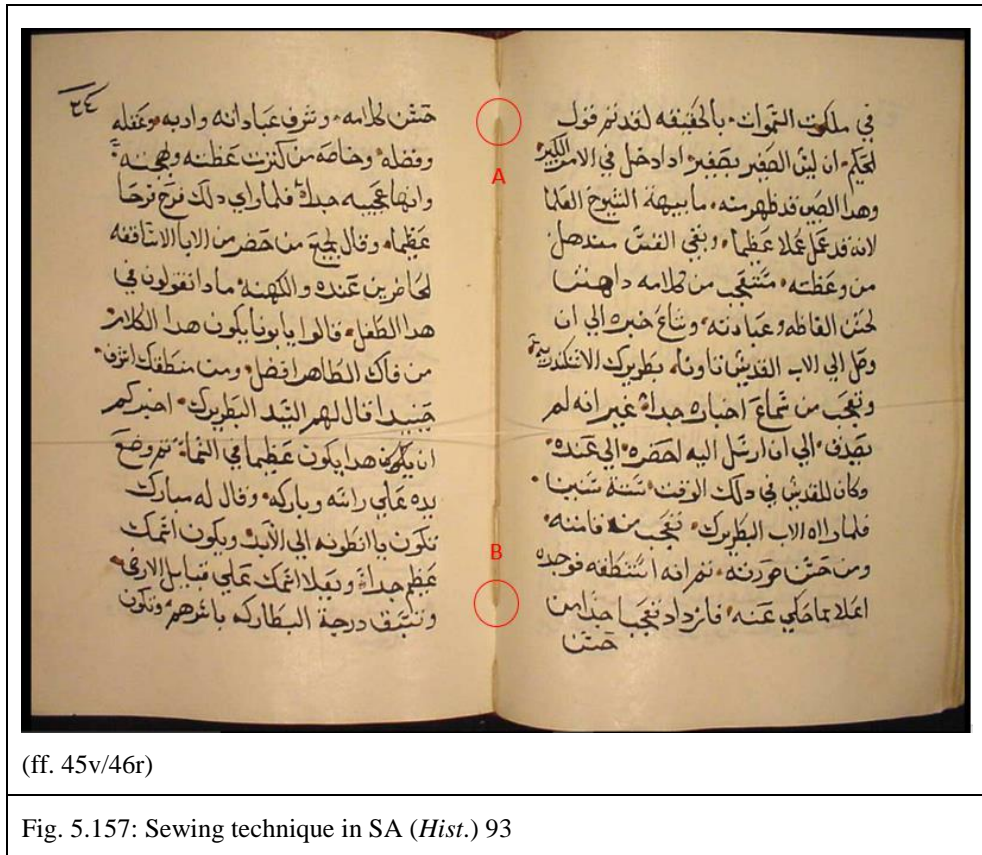 في ملكوت السموات • بالحقيقه لقد تم قول
الحكيم • ان ليس الصغير بصغير • ادا دخل في الامر الكبير
وهدا الصبي قد ظهر منه • ما يبهة الشيوخ العلما
لانه قد عمل عملا عظيما • وبقي القس مندهل
من وعظته • متعجب من كلامه داهشا
لحسن الفاظه وعبادته • وشاع خبره الي ان
وصل الي الاب القديس تاونا • بطريرك الاسكندريه
وتعجب من سماع اخباره جدا • غير انه لم
يصدق • الي ان ارسل اليه احضره • الي عنده
وكان للقديس في دلك الوقت • ستة سنين •
فلما راه الاب البطريرك • تعجب منه قامته •
ومن حسن صورته • ثم انه استنطقه فوجده
اعلا مما حكي عنه • فازداد تعجبا جدا من
حسن
A
B
٢٤
حسن كلامه • وشرف عباداته وادبه • وعقله
وفضله • وخاصه من كثرت عظته ولهجته
وانها عجيبه جدا • فلما راي دلك فرح فرحا
عظيما • وقال لجميع من حضر من الابا الاساقفه
الحاضرين عنده والكهنه • مادا تقولون في
هدا الطفل • قالوا يا بونا يكون هدا الكلام •
من فاك الطاهر افضل • ومن منطقك اشرف •
حينيدا قال لهم السيد البطريرك • اخبركم
ان يكون هدا يكون عظيما في السما • ثم وضع
يده علي راسه وباركه • وقال له مبارك
تكون يا انطونه الي الابد • ويكون اسمك
عظيم جدا • ويعلا اسمك علي قبايل الارض •
وتستحق درجة البطاركه باسرهم • وتكون
(ff. 45v/46r)
Fig. 5.157: Sewing technique in SA (Hist.) 93